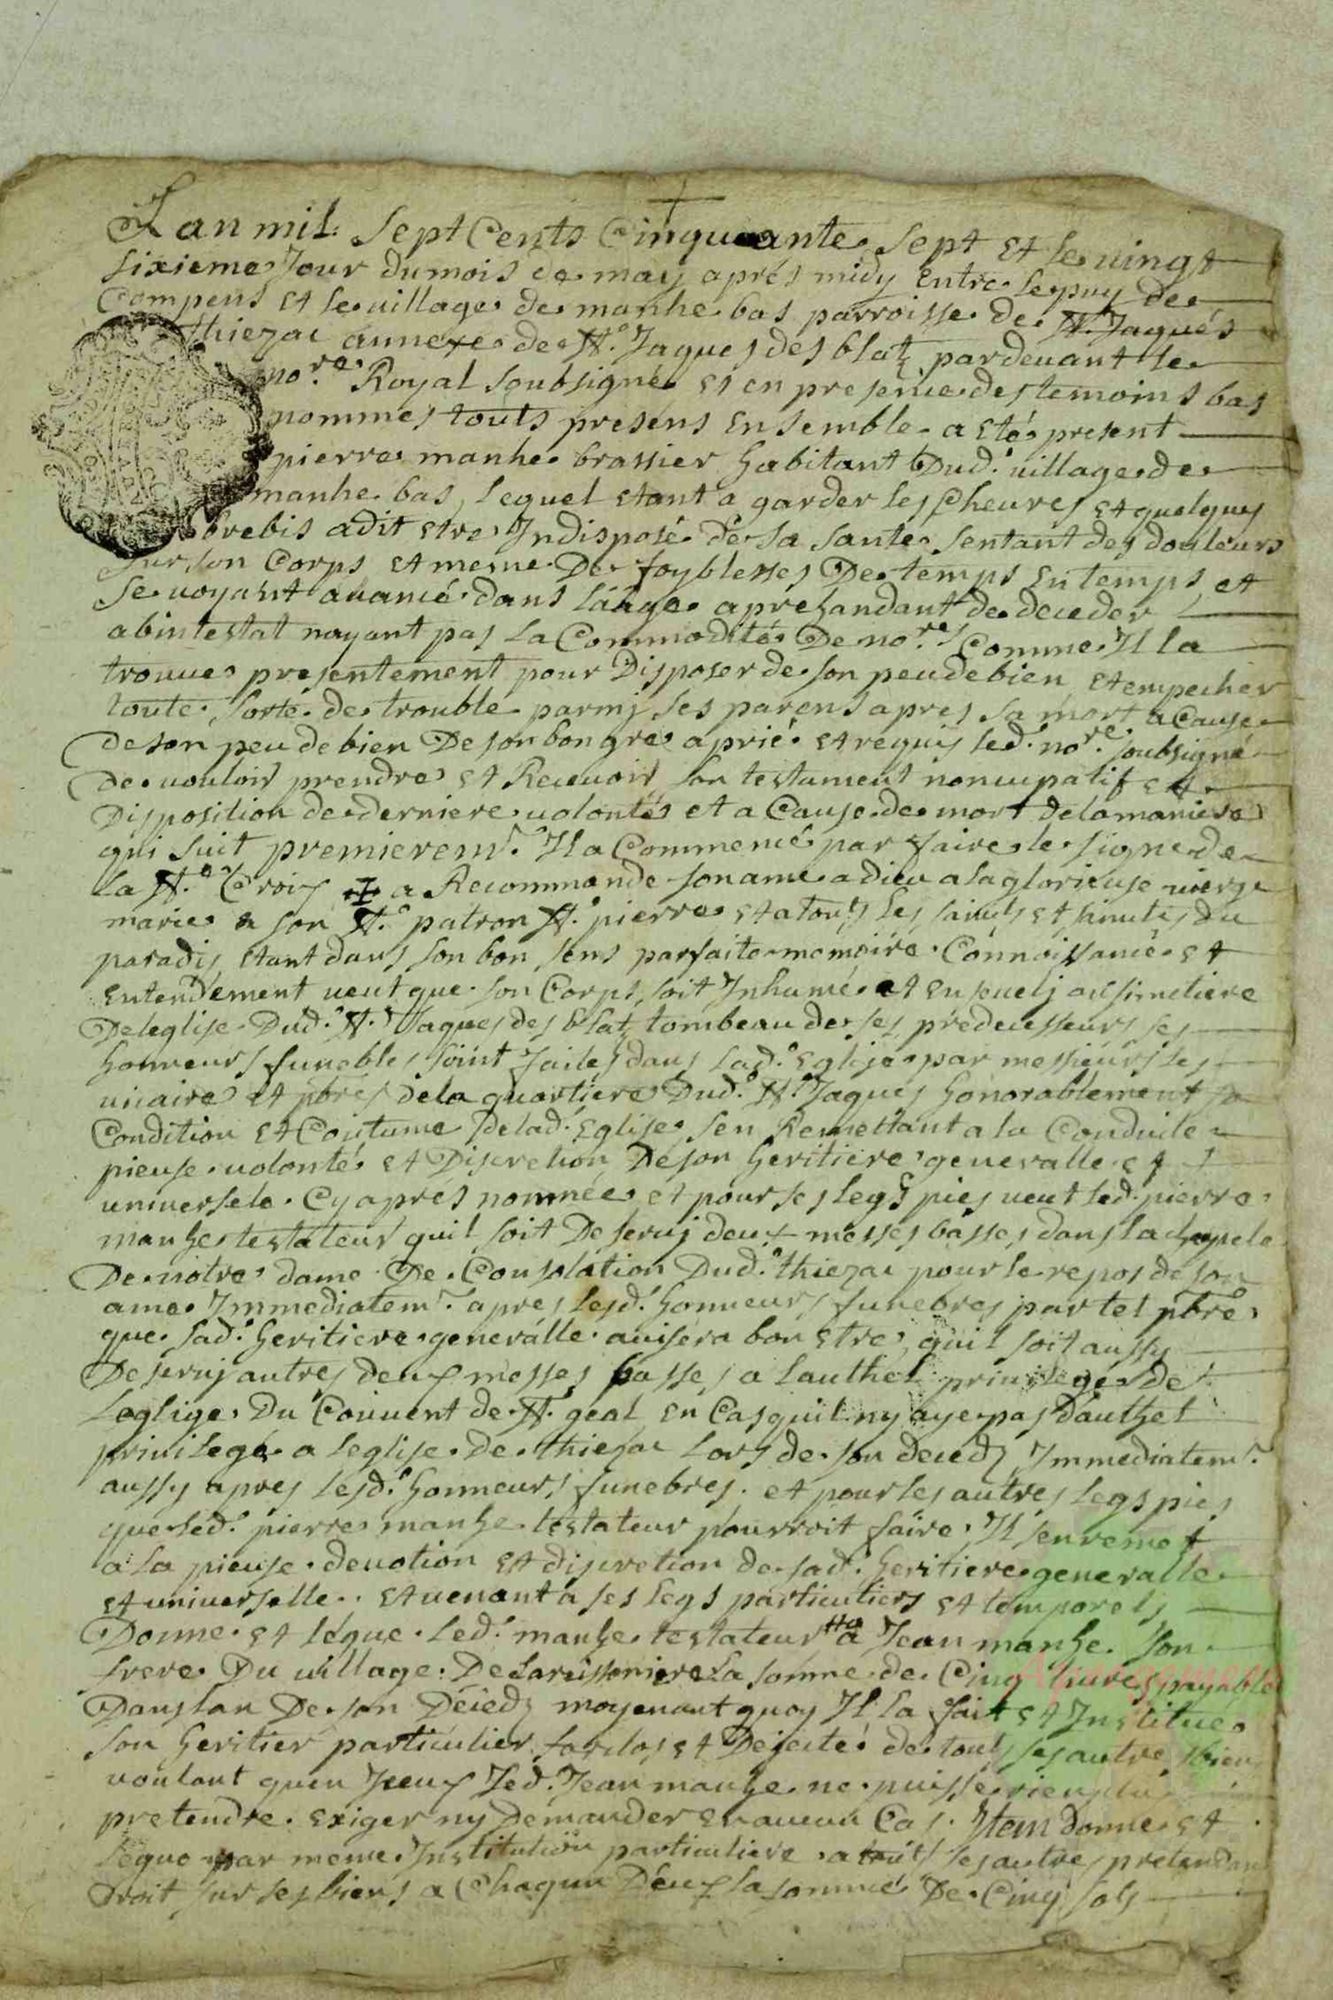 Lan mil Sept Cents Cinquante Sept et le vingt
sixieme Jour du mois de may aprés midy Entre le puy de
Compens et le village de manhe bas parroisse de st. Jaques
thiezac annexe de st. Jaques des blatz pardevant le
nore. Royal soubsigné et en presence des temoins bas
nommes touts presens Ensemble a eté present
pierre manhe brassier habitant Dud. village de
manhe bas, lequel etant a garder les Cheures et quelques
brebis a dit etre Indisposé de sa sante sentant des douleurs
sur son Corps et mesme De foyblesses De temps en temps, et
se voyant auancé dans l'aage aprehandant de deceder
abintestat nayant pas la Commodité De nores. Comme Il la
trouue presentement pour Disposer de son peu de bien et empecher
toute sorte de trouble parmy ses parens apres sa mort a Cause
de son peu de bien De son bon gré a prié et requis led. nore. soubsigné
de vouloir prendre et Recevoir son testament noncupatif et
Disposition de derniere volonté et a Cause de mort de la maniere
qui suit premierement. Il a Commencé par faire le signe de
la ste. Croix ✠ a Recommande son ame a dieu a la glorieuse vierge
marie a son st. patron st. pierre et a touts les saints et saintes du
paradis etant dans son bon sens parfaite memoire Connoissance et
entendement veut que son Corps soit Inhumé et enseuely au simetiere
De leglise Dud. st. Jaques des blatz tombeau de ses predecesseurs ses
honneurs funebles soint faites dans lad. Eglise par messieurs les
vicaire et pbres de la quartiere Dud. st. Jaques honorablement sa
Condition et Coutume De lad. Eglise, sen Remettant a la Conduite
pieuse volonté et Discretion De son heritiere generalle et
universele Cy aprés nommée et pour ses legs pies veut led. pierre
manhe testateur quil soit Deseruj deux messes basses dans la chapele
De notre dame De Consolation Dud. thiezac pour le repos de son
ame Immediatemt. apres lesd. honneurs funebres par tel pbre
que sad. heritiere generalle auisera bon etre, quil soit aussy
Deseruj autres deux messes basses a lauthel privilegé de
Leglize Du Couuent de st. geal en Cas quil ny aye pas dauthel
privilegé a leglise de thiezac lors de son decedz Immediatemt.
aussy apres lesd. honneurs funebres. et pour les autres legs pies
que led. pierre manhe testateur pourroit faire Il sen remet
a la pieuse devotion et discretion de sad. heritiere generalle
et universelle. et venant a ses legs particuliers et temporels
Donne et légue led. manhe testateur a Jean manhe son
frere Du village De Larissoniere la somme de Cinq livres payable
Dans lan De son Décedz moyenant quoy Il la fait et Institue
son heritier particulier forclos et Dejeté de touts ses autres biens
voulant quen Iceux led. Jean manhe ne puisse rien plus
pretendre exiger ny Demander en aucun Cas. Item donne et
légue par meme Institution particuliere a touts ses autres pretendans
Droit sur ses biens a Chaqun Deux la somme De Cinq sols